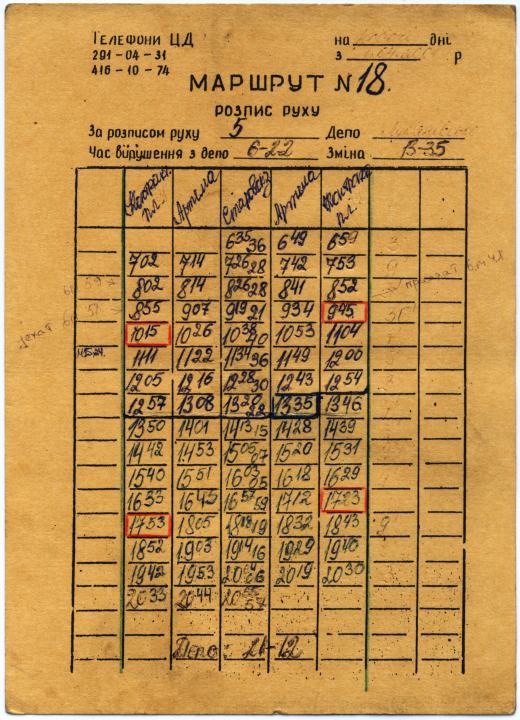 Телефони ЦД
291-04-31
416-10-74
на дні
з р
Маршрут N 18.
розпис руху
За розписом руху 5 Депо
Час вирушення з депо 6-22 Зміна 13-35
Артема Артема
635 36 649 659
702 714 726 28 742 753
802 814 826 28 841 852
855 907 919 21 934 945
1015 1026 1038 40 1053 1104
1111 1122 1134 36 1149 1200
1205 1216 1228 30 1243 1254
1257 1308 1320 22 1335 1346
1350 1401 1413 15 1428 1439
1442 1453 1505 07 1520 1531
1540 1551 1603 05 1618 1629
1633 1645 1657 59 1712 1723
1753 1805 19 1832 1843 9
1852 1903 1914 16 1929 1940
1942 1953 2004 06 2019 2030
2033 2044 20 57
Депо 21-12